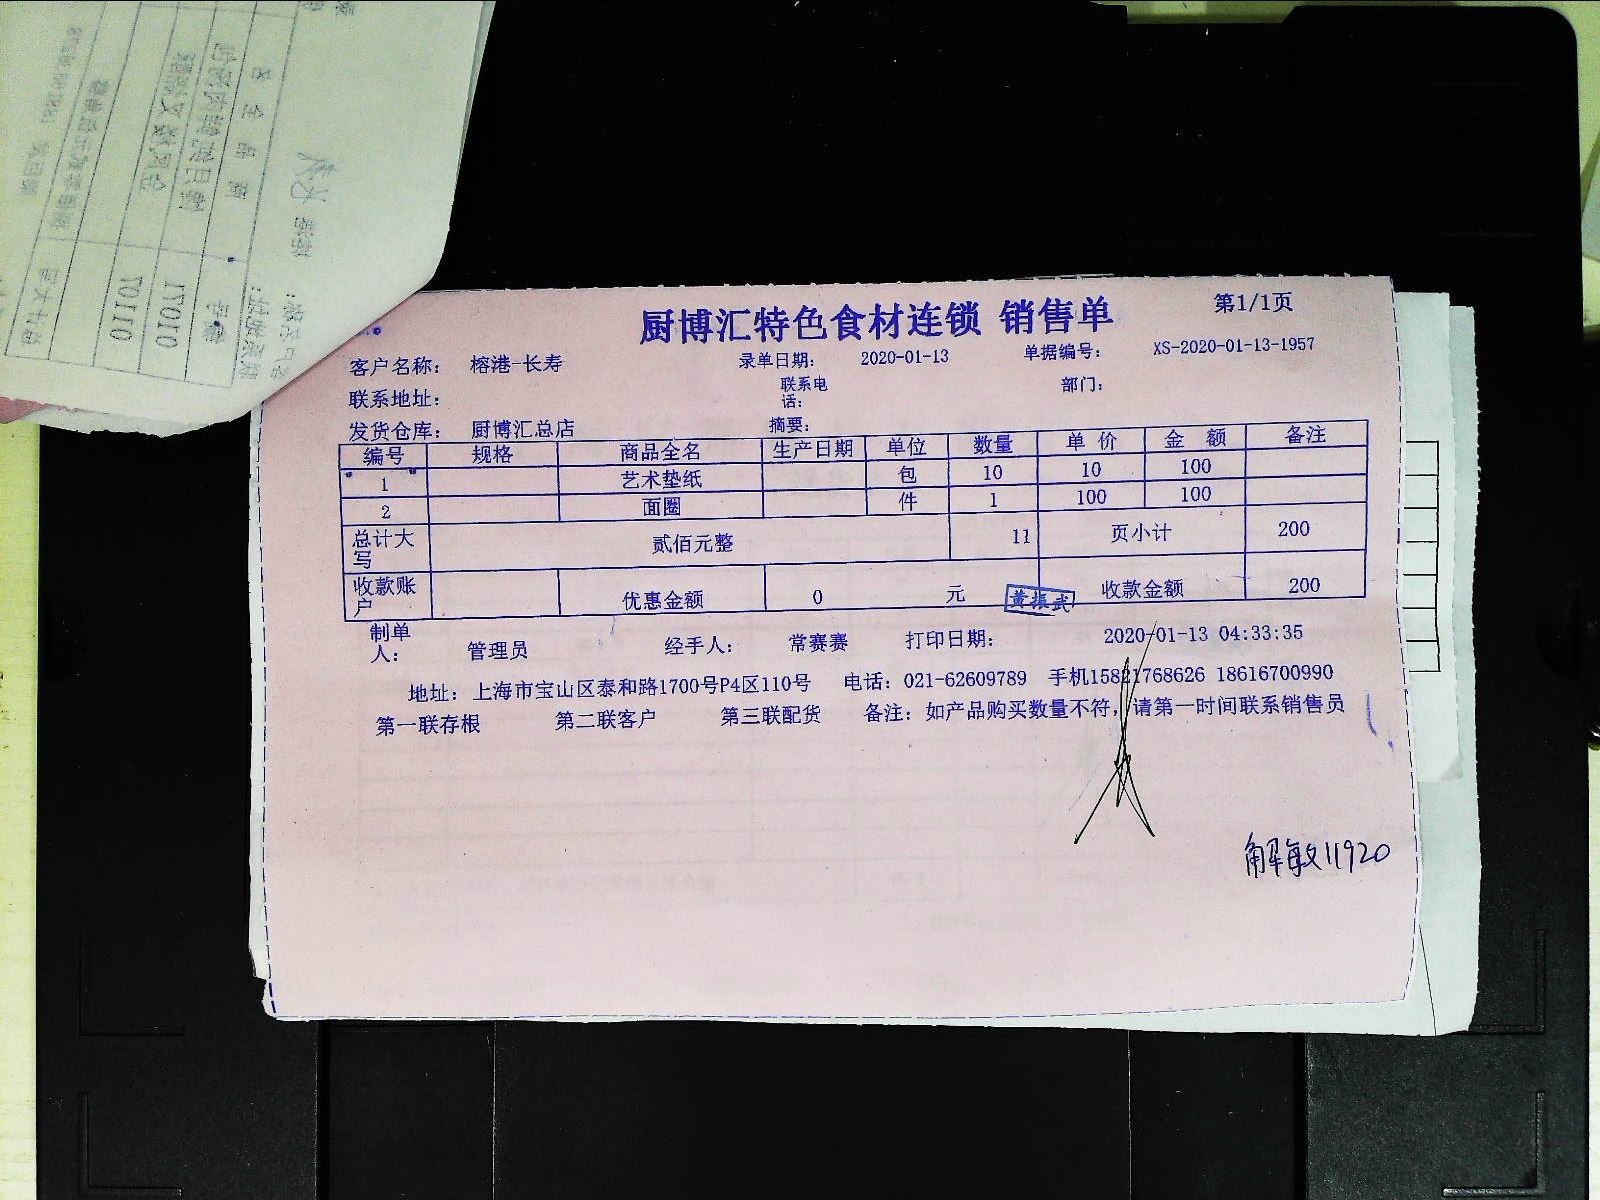 厨博汇特色食材连锁 销售单 第1/1页
客户名称： 榕港-长寿 录单日期： 2020-01-13 单据编号： XS-2020-01-13-1957
联系地址： 联系电话： 部门：
发货仓库： 厨博汇总店 摘要：
编号 规格 商品全名 生产日期 单位 数量 单价 金额 备注
1 艺术垫纸 包 10 10 100
2 面圈 件 1 100 100
总计大写 贰佰元整 11 页小计 200
收款账户 优惠金额 0 元 收款金额 200
黄振武
制单人： 管理员 经手人： 常赛赛 打印日期： 2020-01-13 04:33:35
地址：上海市宝山区泰和路1700号P4区110号 电话：021-62609789 手机15821768626 18616700990
第一联存根 第二联客户 第三联配货 备注：如产品购买数量不符，请第一时间联系销售员
解敏11920
17010
70110